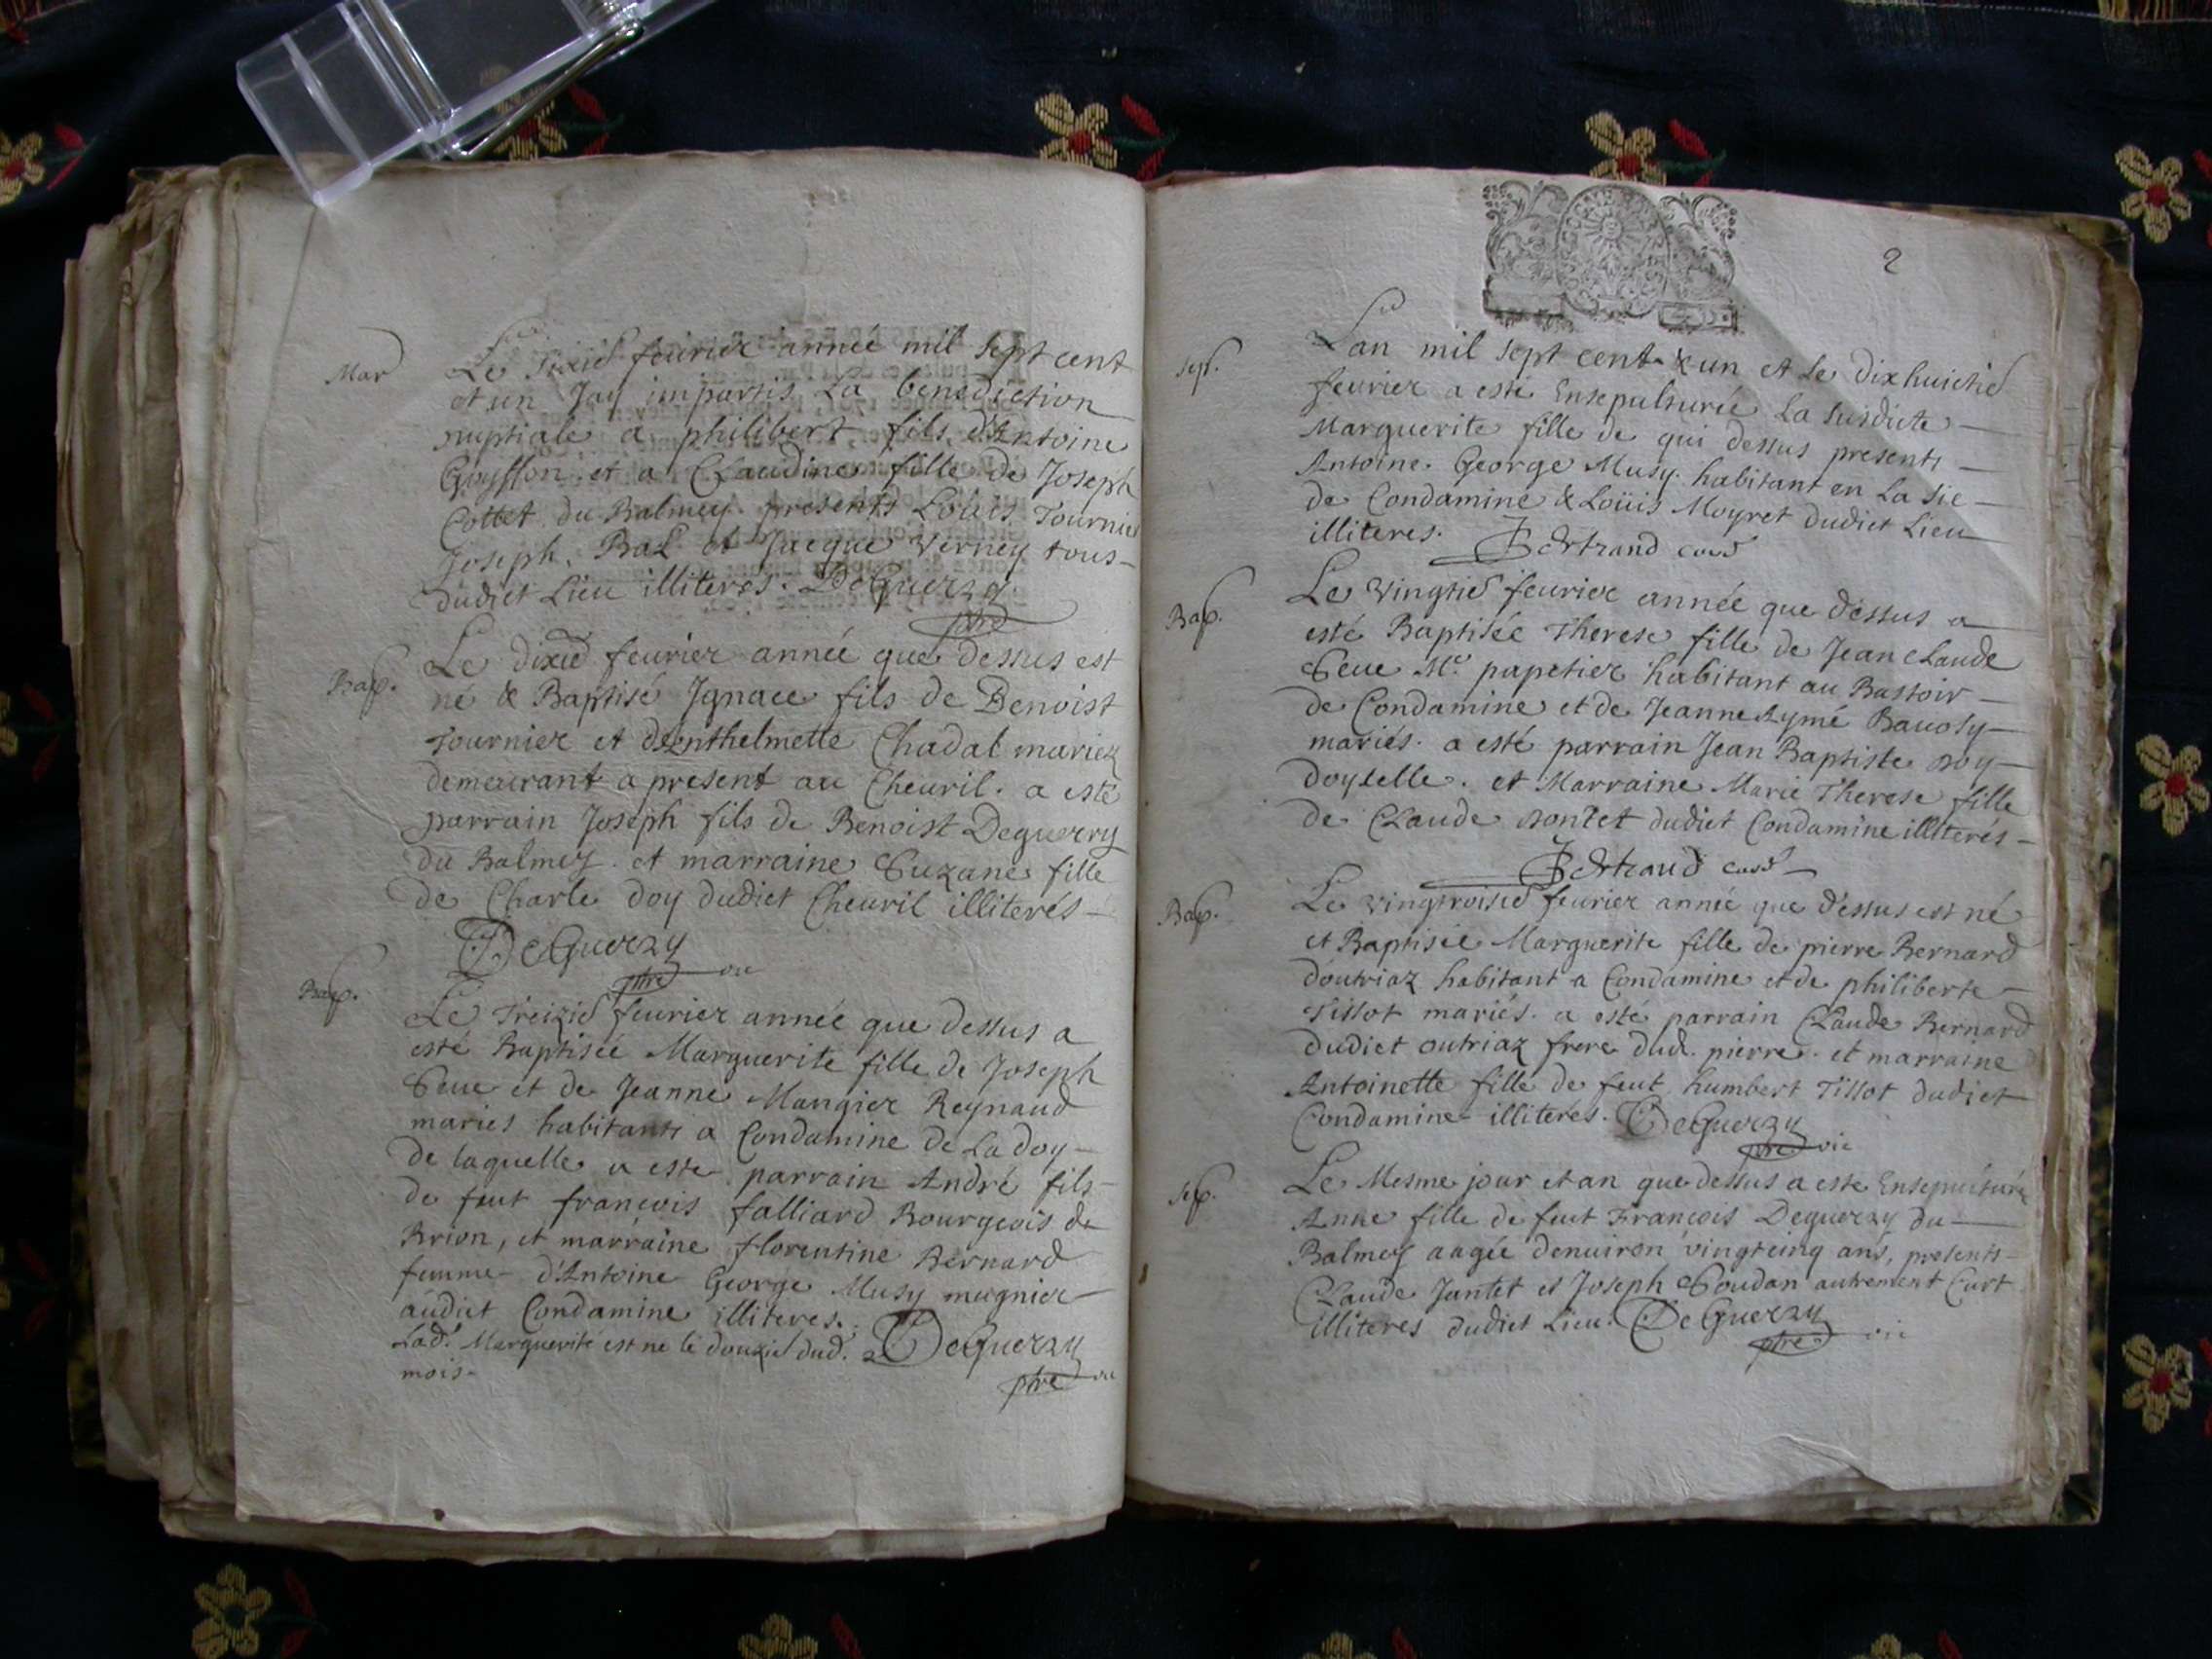 Mar
Le sixie feurier année mil sept cent
et un Jay impartis La benediction
nuptiale a philibert fils d'Antoine
Goysson et a Claudine fille de Joseph
Collet du Balmey. presents Louis Tournier
Joseph. Bal et Jacque Verney tous
dudict Lieu illiteres. DeGuerry
ptre
Bap.
Le dixie feurier année que dessus est
né & Baptisé Ignace fils de Benoist
Tournier et d'Enthelmette Chadal mariez
demeurant a present au Cheuril. a esté
parrain Joseph fils de Benoist Deguerry
du Balmey. et marraine Suzane fille
de Charle Doy dudict Cheuril illiterés
DeGuerry
ptre vic
Bap.
Le Treizie feurier année que dessus a
esté Baptisée Marguerite fille de Joseph
Seue et de Jeanne Mangier Reynaud
mariés habitants a Condamine de La doy
de laquelle a este parrain André fils
de feut francois falliard Bourgeois de
Brion, et marraine florentine Bernard
femme d'Antoine George Musy mugnier
audict Condamine illiteres.
Lad. Marguerite est ne le douzie dud. DeGuerry
mois.
ptre vic
2
sep.
Lan mil sept cent & un et Le dix huictie
feurier a esté Ensepulturée La susdicte
Marguerite fille de qui dessus presents
Antoine George Musy. habitant en La sie
de Condamine & Loüis Moyret dudict Lieu
illiteres. Bertrand curé
Bap.
Le vingtie feurier année que dessus a
esté Baptisée Therese fille de Jean claude
Seue Me. papetier habitant au Battoir
de Condamine et de Jeanne Aymé Bauosy
mariés. a esté parrain Jean Baptiste
et Marraine Marie Therese fille
de Claude dudict Condamine illiterés
Bertrand curé
Bap.
Le vingtroisie feurier année que dessus est né
et Baptisée Marguerite fille de pierre Bernard
doutriaz habitant a Condamine et de philiberte
Tissot mariés. a esté parrain Claude Bernard
dudict outriaz frere dud. pierre. et marraine
Antoinette fille de feut humbert Tissot dudict
Condamine illiterés. DeGuerry
ptre vic
sep.
Le Mesme jour et an que dessus a este Ensepulturé
Anne fille de feut Francois Deguerry du
Balmey aagée denuiron vingtcinq ans, presents
Claude Jantet et Joseph Goudan autrement Curt
illiteres dudict Lieu. DeGuerry
ptre vic